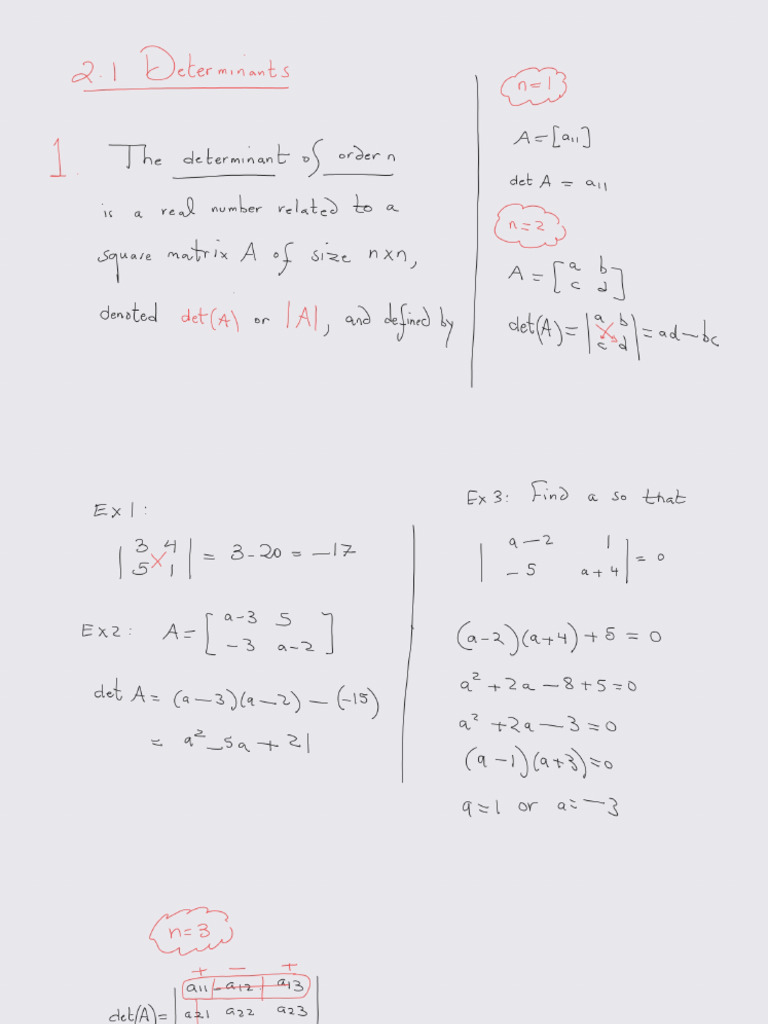 2.1 Determinants
1. The determinant of order n
is a real number related to a
square matrix A of size n×n,
denoted det(A) or |A|, and defined by
n=1
A=[a11]
det A = a11
n=2
A = [a b
c d]
det(A) = |a b
c d| = ad − bc
Ex 1:
|3 4
5 1| = 3-20 = −17
Ex2: A = [a-3 5
−3 a-2]
det A = (a−3)(a−2) − (−15)
= a² − 5a + 21
Ex 3: Find a so that
|a−2 1
−5 a+4| = 0
(a-2)(a+4) + 5 = 0
a² + 2a − 8 + 5 = 0
a² + 2a − 3 = 0
(a −1)(a+3) = 0
a=1 or a=−3
n=3
+ − +
det(A) = |a11 a12 a13
a21 a22 a23|